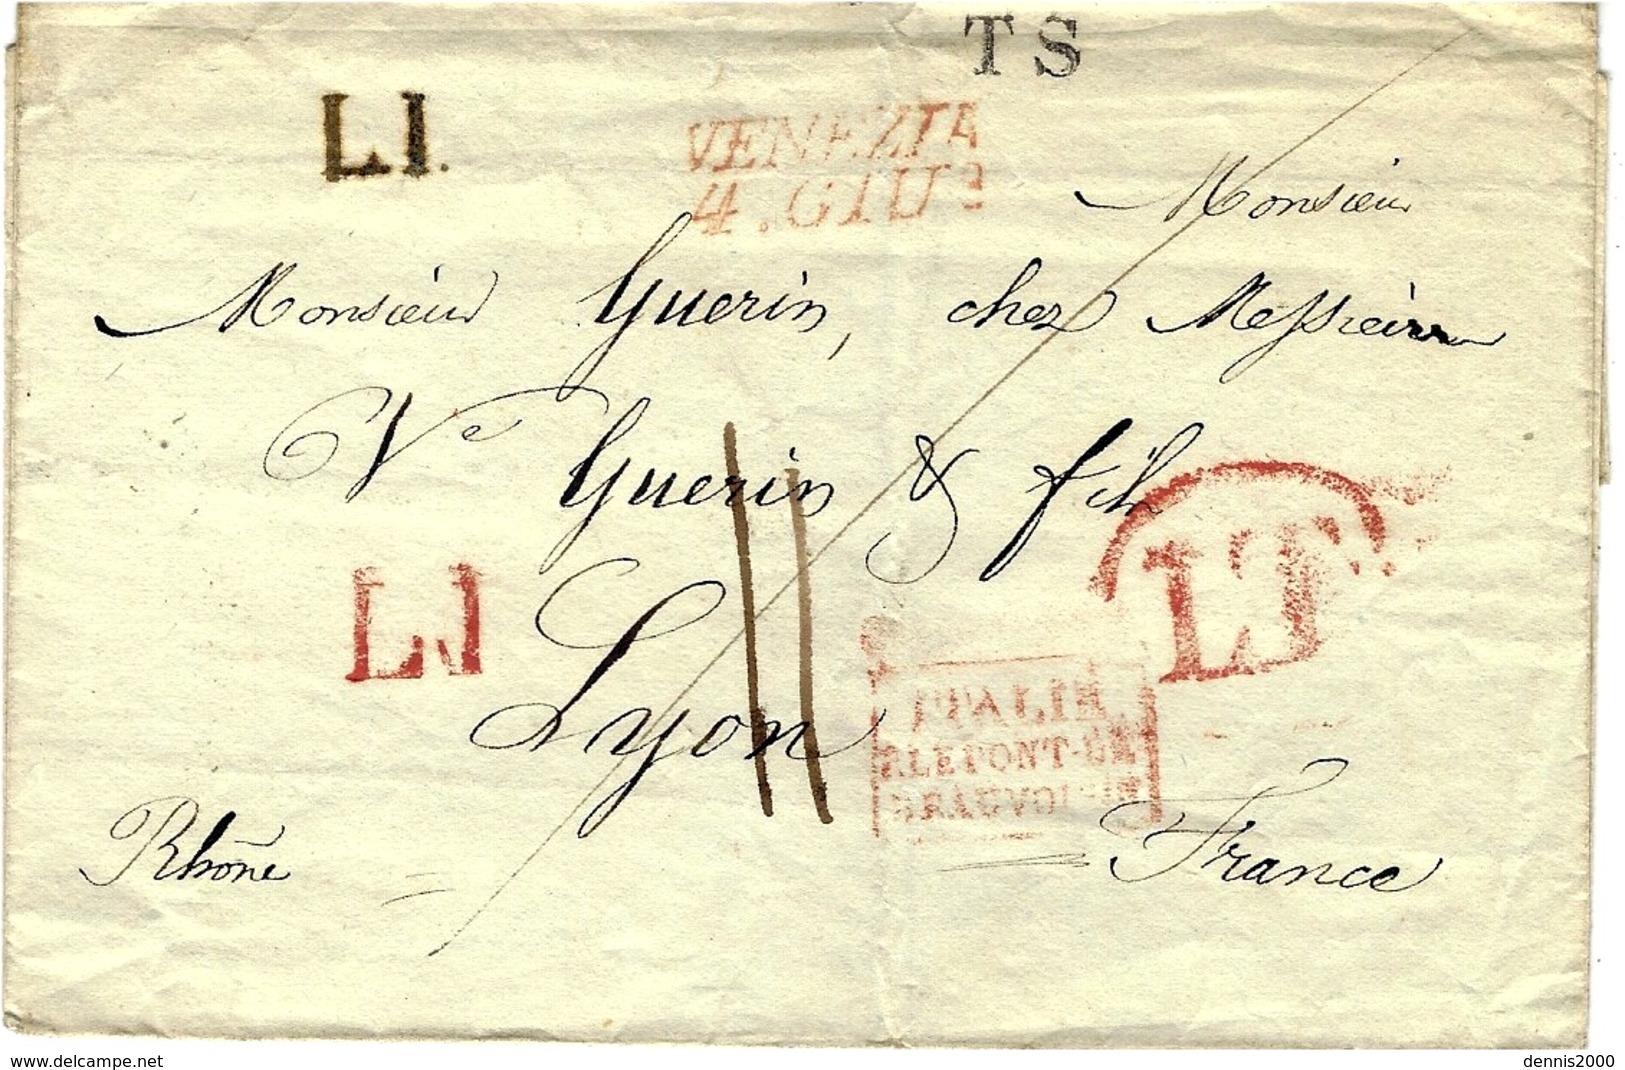 T S
L I.
VENEZIA
4. GIUº
Monsieur
Monsieur Guerin, chez Messieurs
Vᵉ Guerin & fils
L.I
LT
Lyon
11
ITALIE
P. LE PONT-DE
BEAUVOISIN
Rhône
France
www.delcampe.net
dennis2000